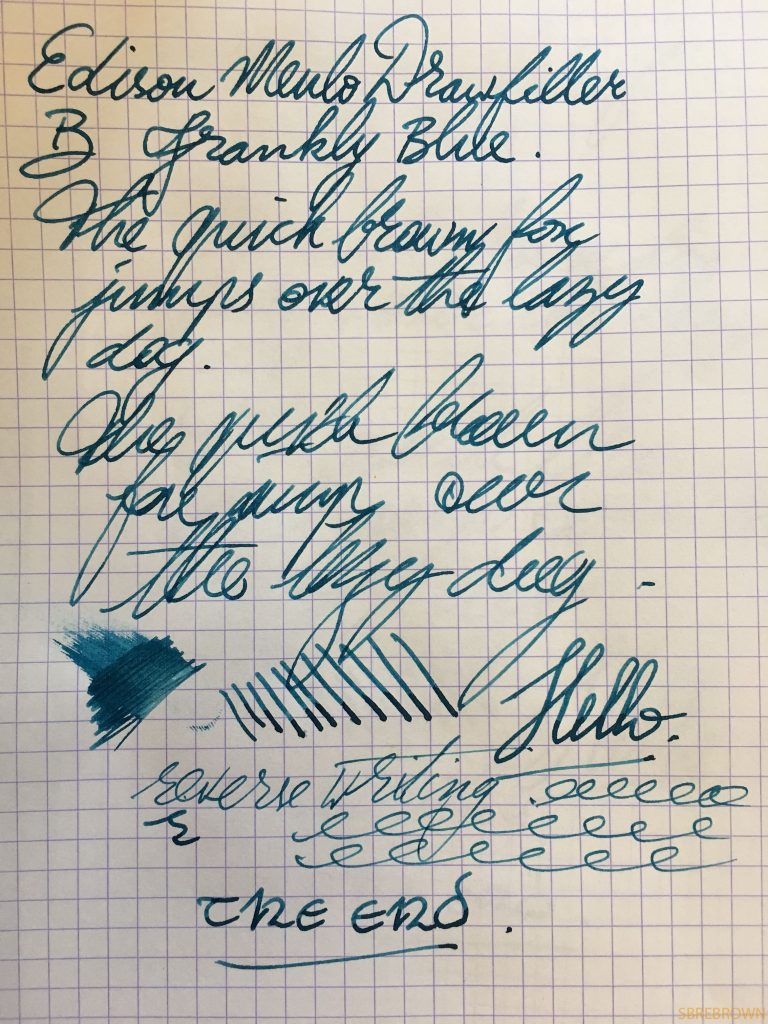 Edison Menlo Drawfiller
B Frankly Blue.
The quick brown fox
jumps over the lazy
dog.
the quick brown
fox jumps over
the lazy dog.
Hello.
reverse writing
THE END.
SBREBROWN